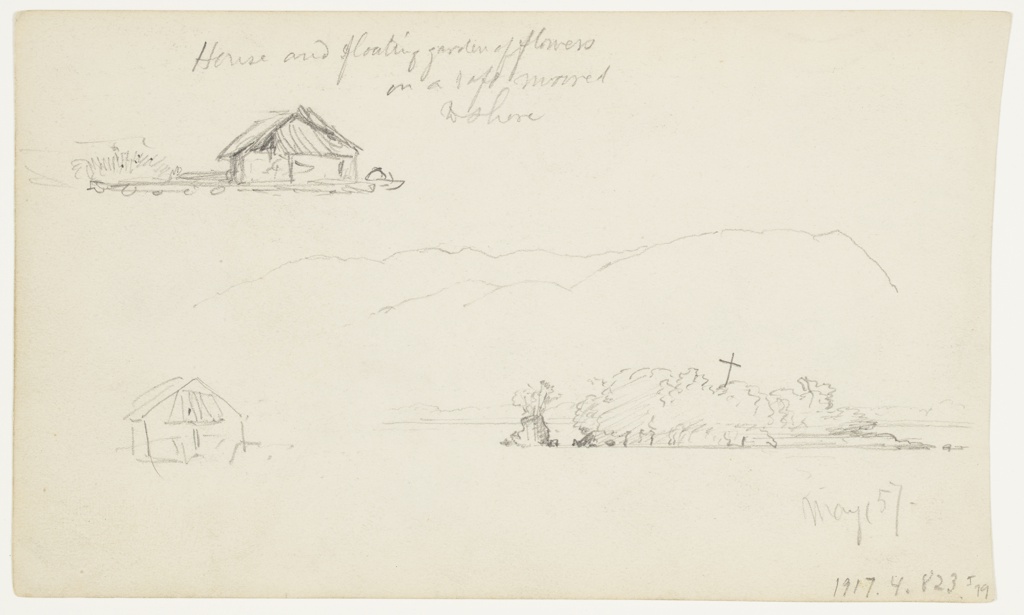 House and floating garden of flowers
on a raft moored
to shore
May 57.
1917. 4. 823.